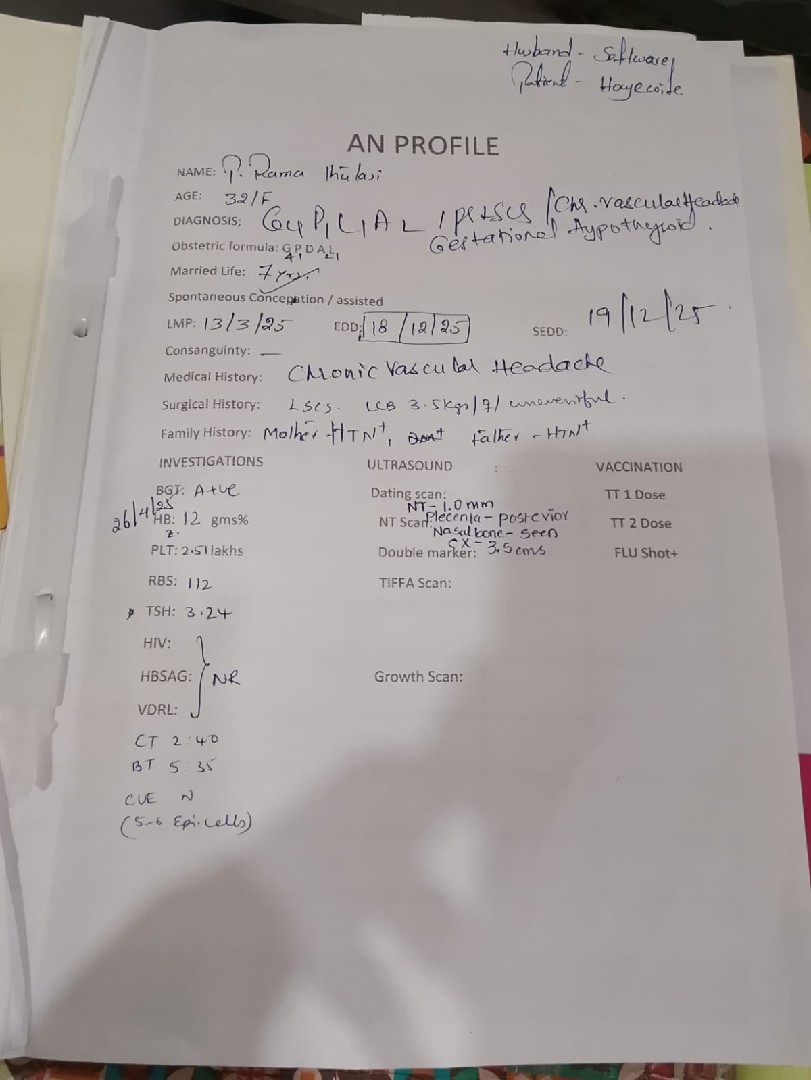 Husband - Software,
Patient -
AN PROFILE
NAME: P. Rama Thulasi
AGE: 32/F
DIAGNOSIS: G4P1L1A2 / prLSCS / Chr. Vascular Headach
Gestational Hypothyroid.
Obstetric formula: G4P1DA2L1
Married Life: 7 yrs.
Spontaneous Conception / assisted
LMP: 13/3/25 EDD: 18/12/25 SEDD: 19/12/25.
Consanguinty: —
Medical History: Chronic Vascular Headache
Surgical History: LSCS. LCB 3.5kgs/ uneventful.
Family History: Mother HTN+, Father - HTN+
INVESTIGATIONS ULTRASOUND : VACCINATION
BGT: A+ve Dating scan: TT 1 Dose
26/4/25 NT - 1.0mm
HB: 12 gms% NT Scan: Plecenta - posterior TT 2 Dose
Nasal bone - seen
CX - 3.5cms
PLT: 2.51 lakhs Double marker: FLU Shot+
RBS: 112 TIFFA Scan:
TSH: 3.24
HIV:
HBSAG: NR Growth Scan:
VDRL:
CT 2:40
BT 5:35
CUE N
(5-6 Epi.cells)